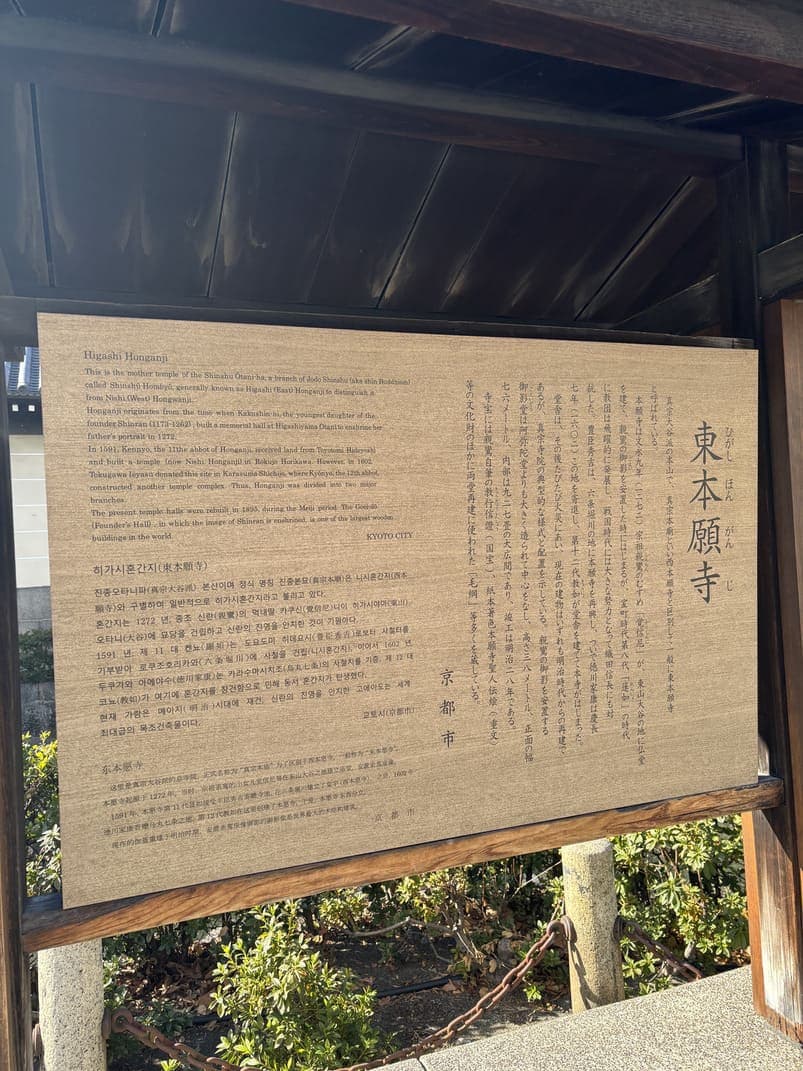 Higashi Honganji
This is the mother temple of the Shinshū Ōtani-ha, a branch of Jodo Shinshu (aka shin Buddhism)
called Shinshū Hombyō, generally known as Higashi (East) Honganji to distinguish it
from Nishi (West) Hongwanji.
Honganji originates from the time when Kakushin-ni, the youngest daughter of the
founder Shinran (1173-1262) , built a memorial hall at Higashiyama Ōtani to enshrine her
father's portrait in 1272.
In 1591, Kennyo, the 11the abbot of Honganji, received land from Toyotomi Hideyoshi
and built a temple (now Nishi Honganji) in Rokujō Horikawa. However, in 1602,
Tokugawa Ieyasu donated this site in Karasuma Shichijō, where Kyōnyo, the 12th abbot,
constructed another temple complex. Thus, Honganji was divided into two major
branches.
The present temple halls were rebuilt in 1895, during the Meiji period. The Goei-dō
(Founder's Hall) , in which the image of Shinran is enshrined, is one of the largest wooden
buildings in the world.
KYOTO CITY
히가시혼간지(東本願寺)
진종오타니파(真宗大谷派) 본산이며 정식 명칭 진종본묘(真宗本廟)은 니시혼간지(西本
願寺)와 구별하여 일반적으로 히가시혼간지라고 불리고 있다.
혼간지는 1272 년, 종조 신란(親鸞)의 막내딸 카쿠신(覚信尼)니이 히가시야마(東山)
오타니(大谷)에 묘당을 건립하고 신란의 진영을 안치한 것이 기원이다.
1591 년, 제 11 대 켄뇨(顕如)는 도요도미 히데요시(豊臣秀吉)로부터 사찰터를
기부받아 로쿠조호리카와(六条堀川)에 사찰을 건립(니시혼간지), 이어서 1602 년
도쿠가와 이에야수(徳川家康)는 카라수마시치조(烏丸七条)의 사찰지를 기증, 제 12 대
쿄뇨(教如)가 여기에 혼간지를 창건함으로 인해 동서 혼간지가 탄생했다.
현재 가람은 메이지(明治)시대에 재건, 신란의 진영을 안치한 고에이도는 세계
최대급의 목조건축물이다.
교토시(京都市)
东本愿寺
京 都 市
東本願寺
ひがし ほん がん じ
真宗大谷派の本山で、「真宗本廟」といい西本願寺と区別して、一般に東本願寺
と呼ばれている。
本願寺は文永九年（一二七二）宗祖親鸞のむすめ「覚信尼」が、東山大谷の地に仏堂
を建て、親鸞の御影を安置した時にはじまるが、室町時代第八代「蓮如」の時代
に教団は飛躍的に発展し、戦国時代には大きな勢力となって織田信長にも対
抗した。豊臣秀吉は、六条堀川の地に本願寺を再興し、ついで徳川家康は慶長
七年（一六〇二）この地を寄進し、第十二代教如が堂舎を建てて本寺がはじまった。
堂舎は、その後たびたび火災にあい、現在の建物はいずれも明治時代からの再建で
あるが、真宗寺院の典型的な様式と配置を示している。親鸞の御影を安置する
御影堂は阿弥陀堂よりも大きく造られて中心をなし、高さ三八メートル、正面の幅
七六メートル、内部は九二七畳の大広間であり、竣工は明治二八年である。
寺宝には親鸞自筆の教行信證（国宝）、紙本著色本願寺聖人伝絵（重文）
等の文化財のほかに両堂再建に使われた「毛綱」等多くを蔵している。
京都市